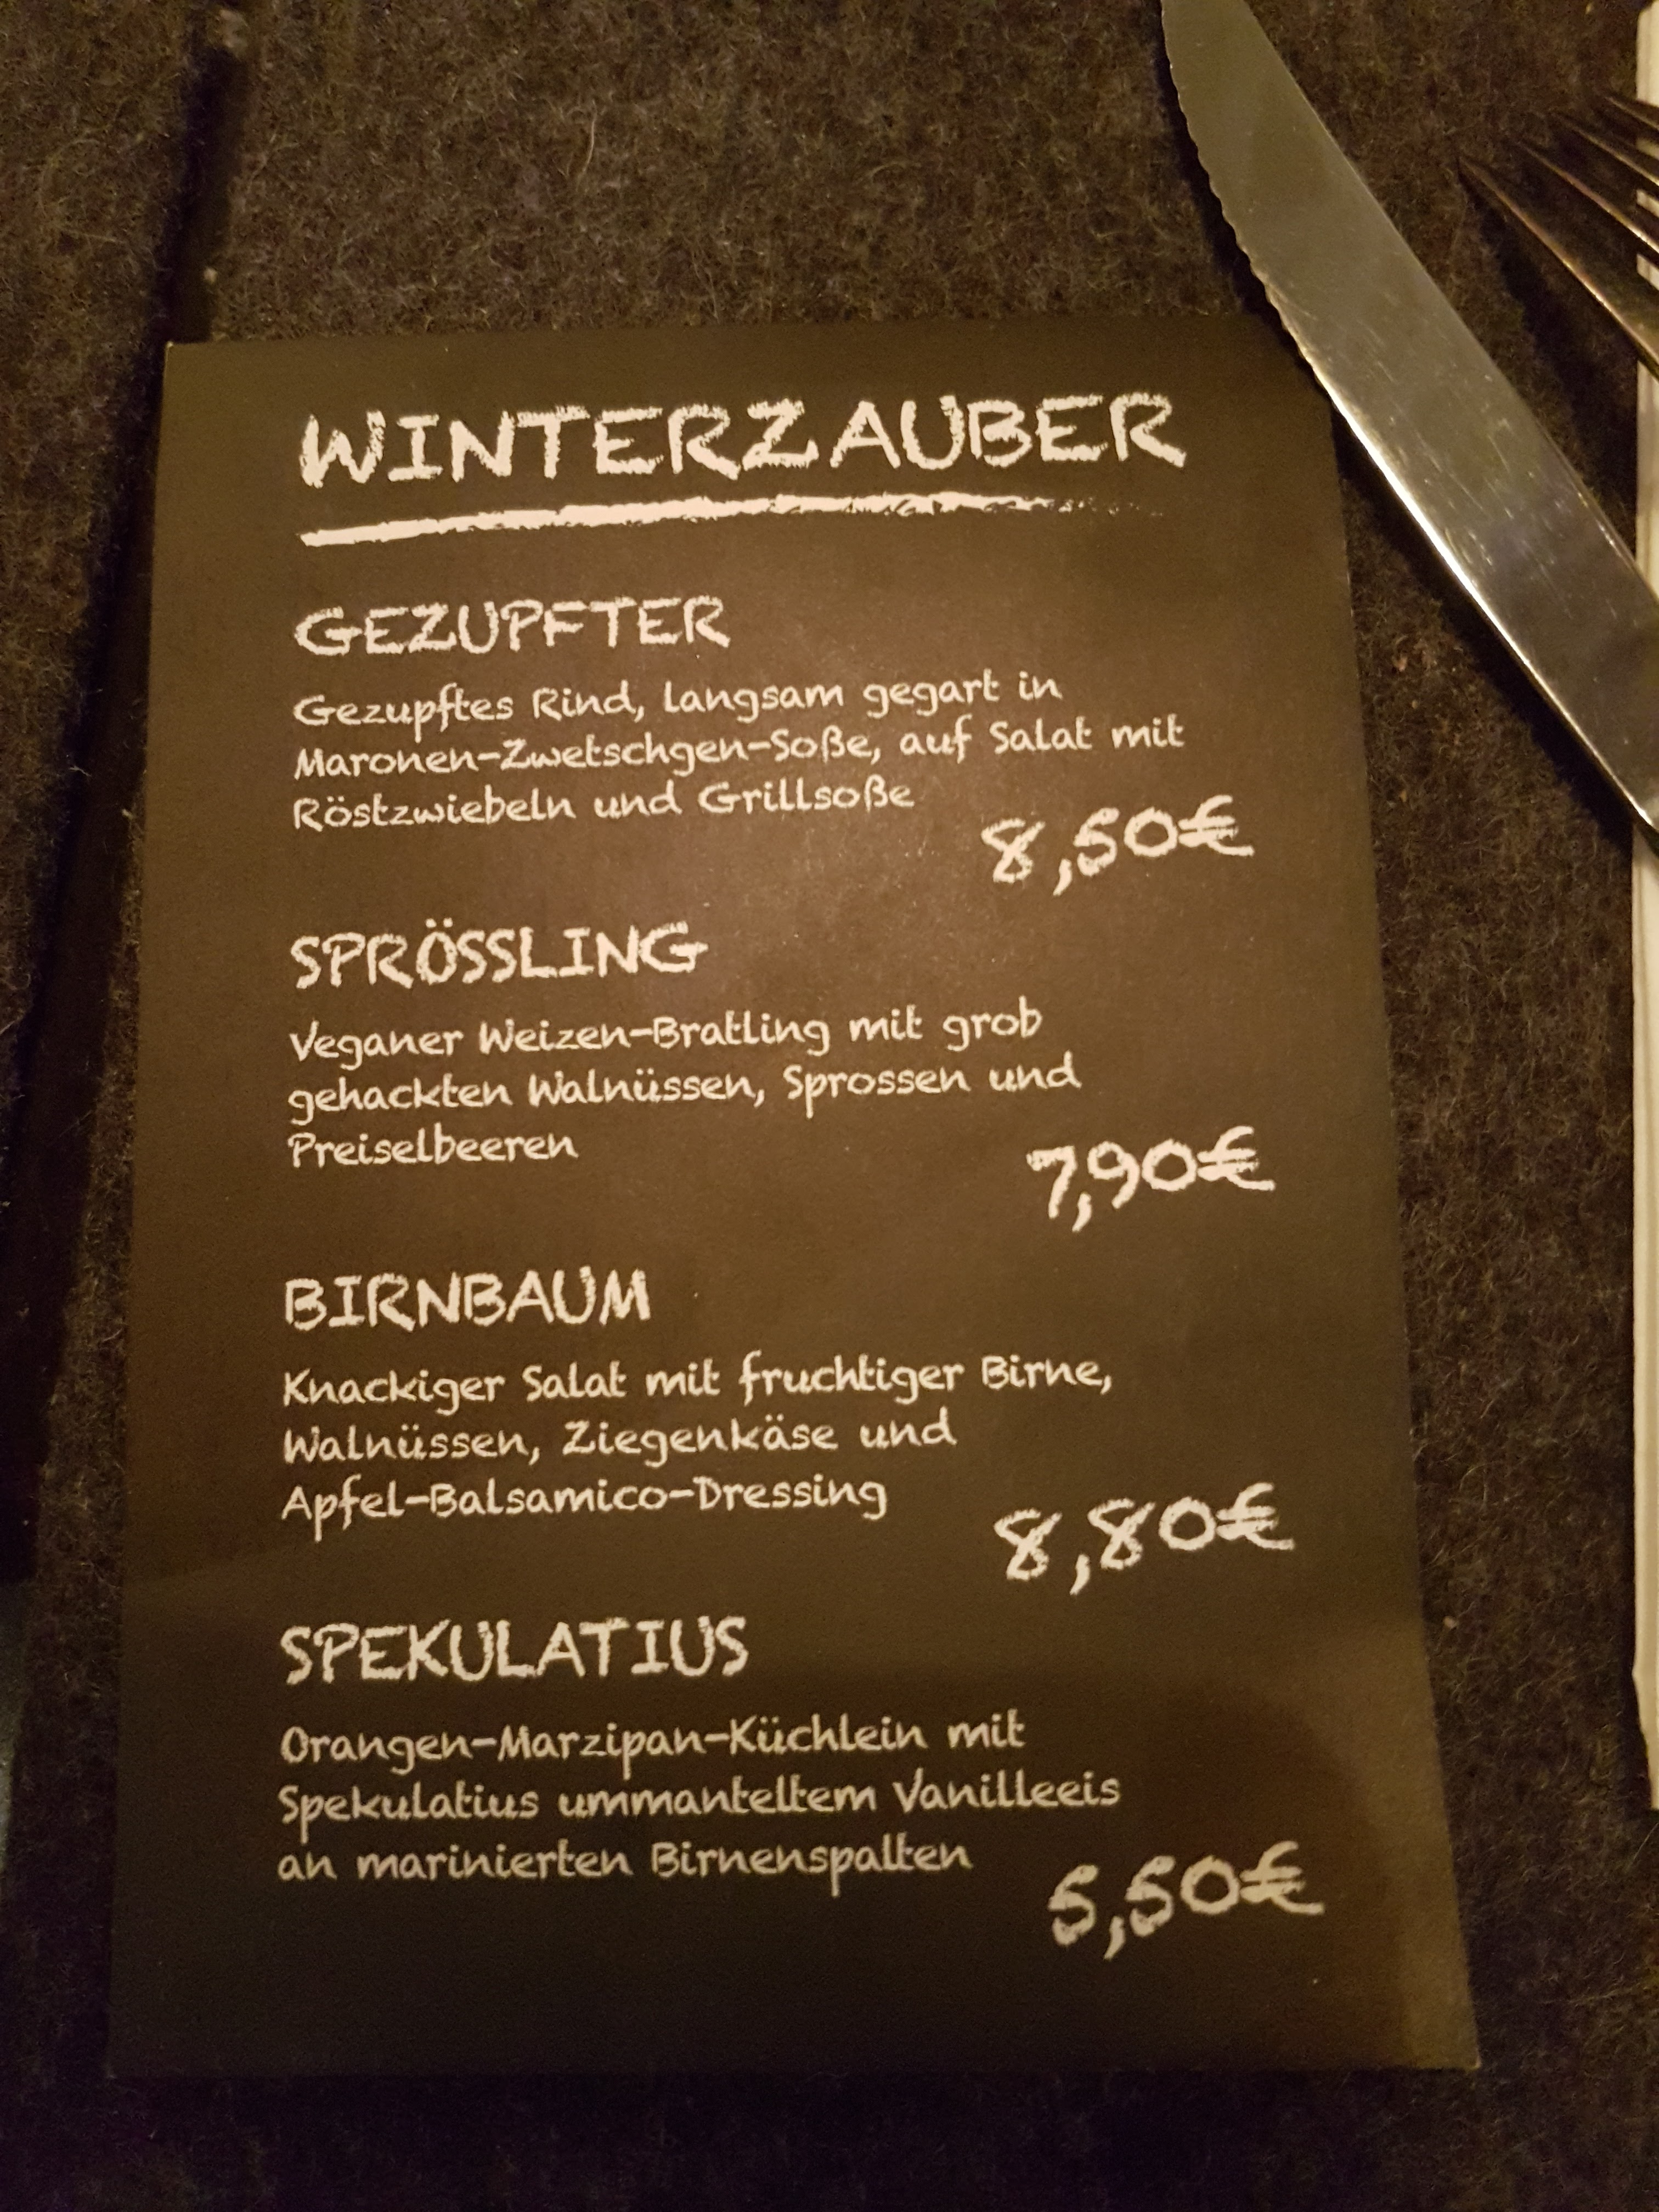 WINTERZAUBER
GEZUPFTER
Gezupftes Rind, langsam gegart in
Maronen-Zwetschgen-Soße, auf Salat mit
Röstzwiebeln und Grillsoße
8,50€
SPRÖSSLING
Veganer Weizen-Bratling mit grob
gehackten Walnüssen, Sprossen und
Preiselbeeren
7,90€
BIRNBAUM
Knackiger Salat mit fruchtiger Birne,
Walnüssen, Ziegenkäse und
Apfel-Balsamico-Dressing
8,80€
SPEKULATIUS
Orangen-Marzipan-Küchlein mit
Spekulatius ummanteltem Vanilleeis
an marinierten Birnenspalten
5,50€